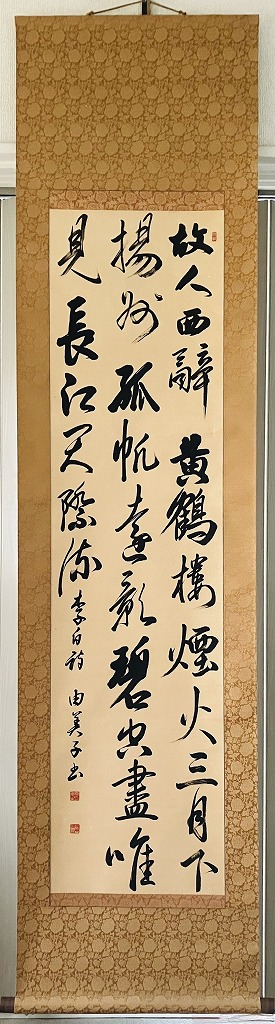 故人西辭黄鶴樓煙火三月下
揚州孤帆遠影碧空盡唯
見長江天際流李白詩 由美子書